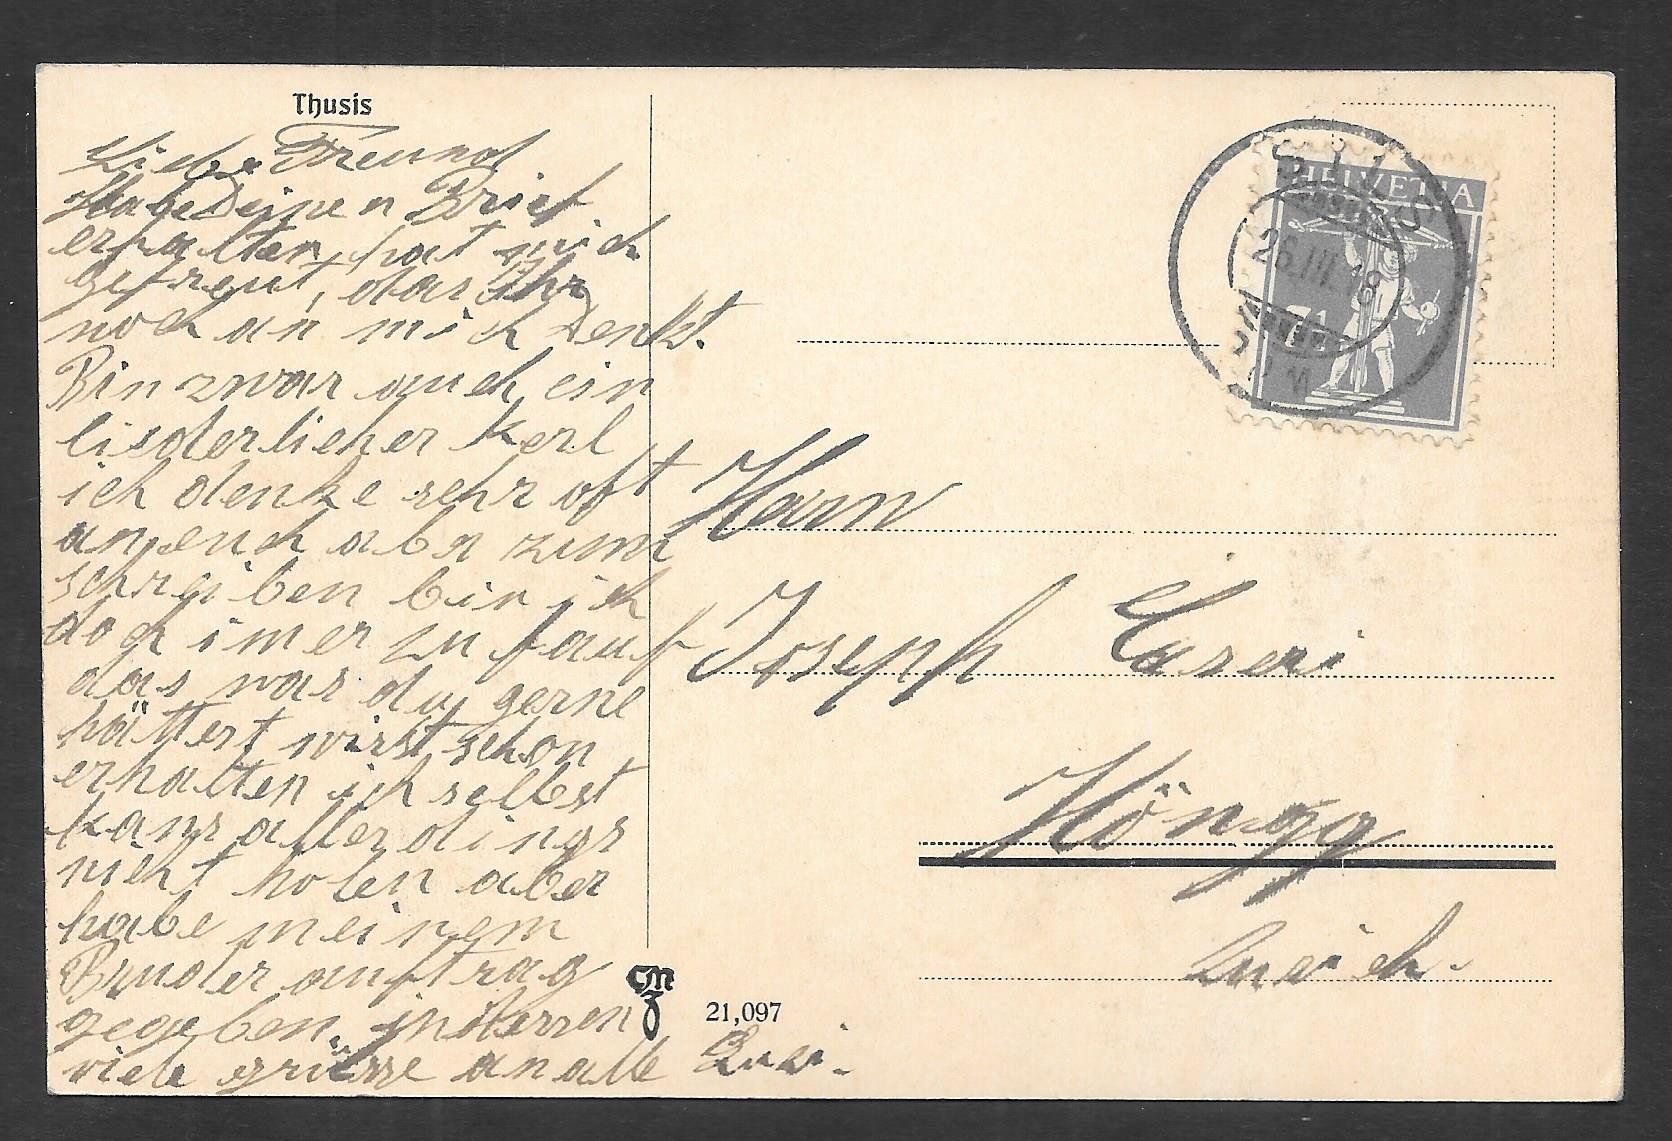 Thusis
Liebe Freund
Habe Deinen Brief
erhalten, hat mich
gefreut, das Ihr
noch an mich Denkt.
Bin zwar auch ein
liederlicher Kerl
ich denke sehr oft
an euch aber zum
schreiben bin ich
doch imer zu fauf
das was du gerne
hättest wirst schon
erhalten ich selbst
kans allerdings
nicht holen aber
habe meinem
Bruder auftrag
gegeben. indessen
viele grüsse an alle
HELVETIA
26.III.18
7½
Herrn
Joseph Caseri
Höngg
Zürich.
CMZ
21,097